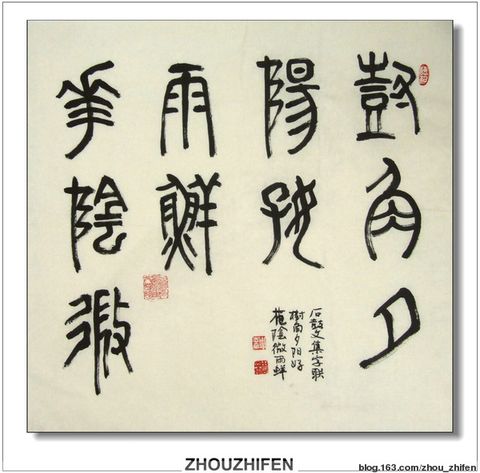 尌角夕
陽好
華陰微
雨鮮
石鼓文集字联
樹角夕阳好
陰微雨鲜
ZHOUZHIFEN
blog.163.com/zhou_zhifen